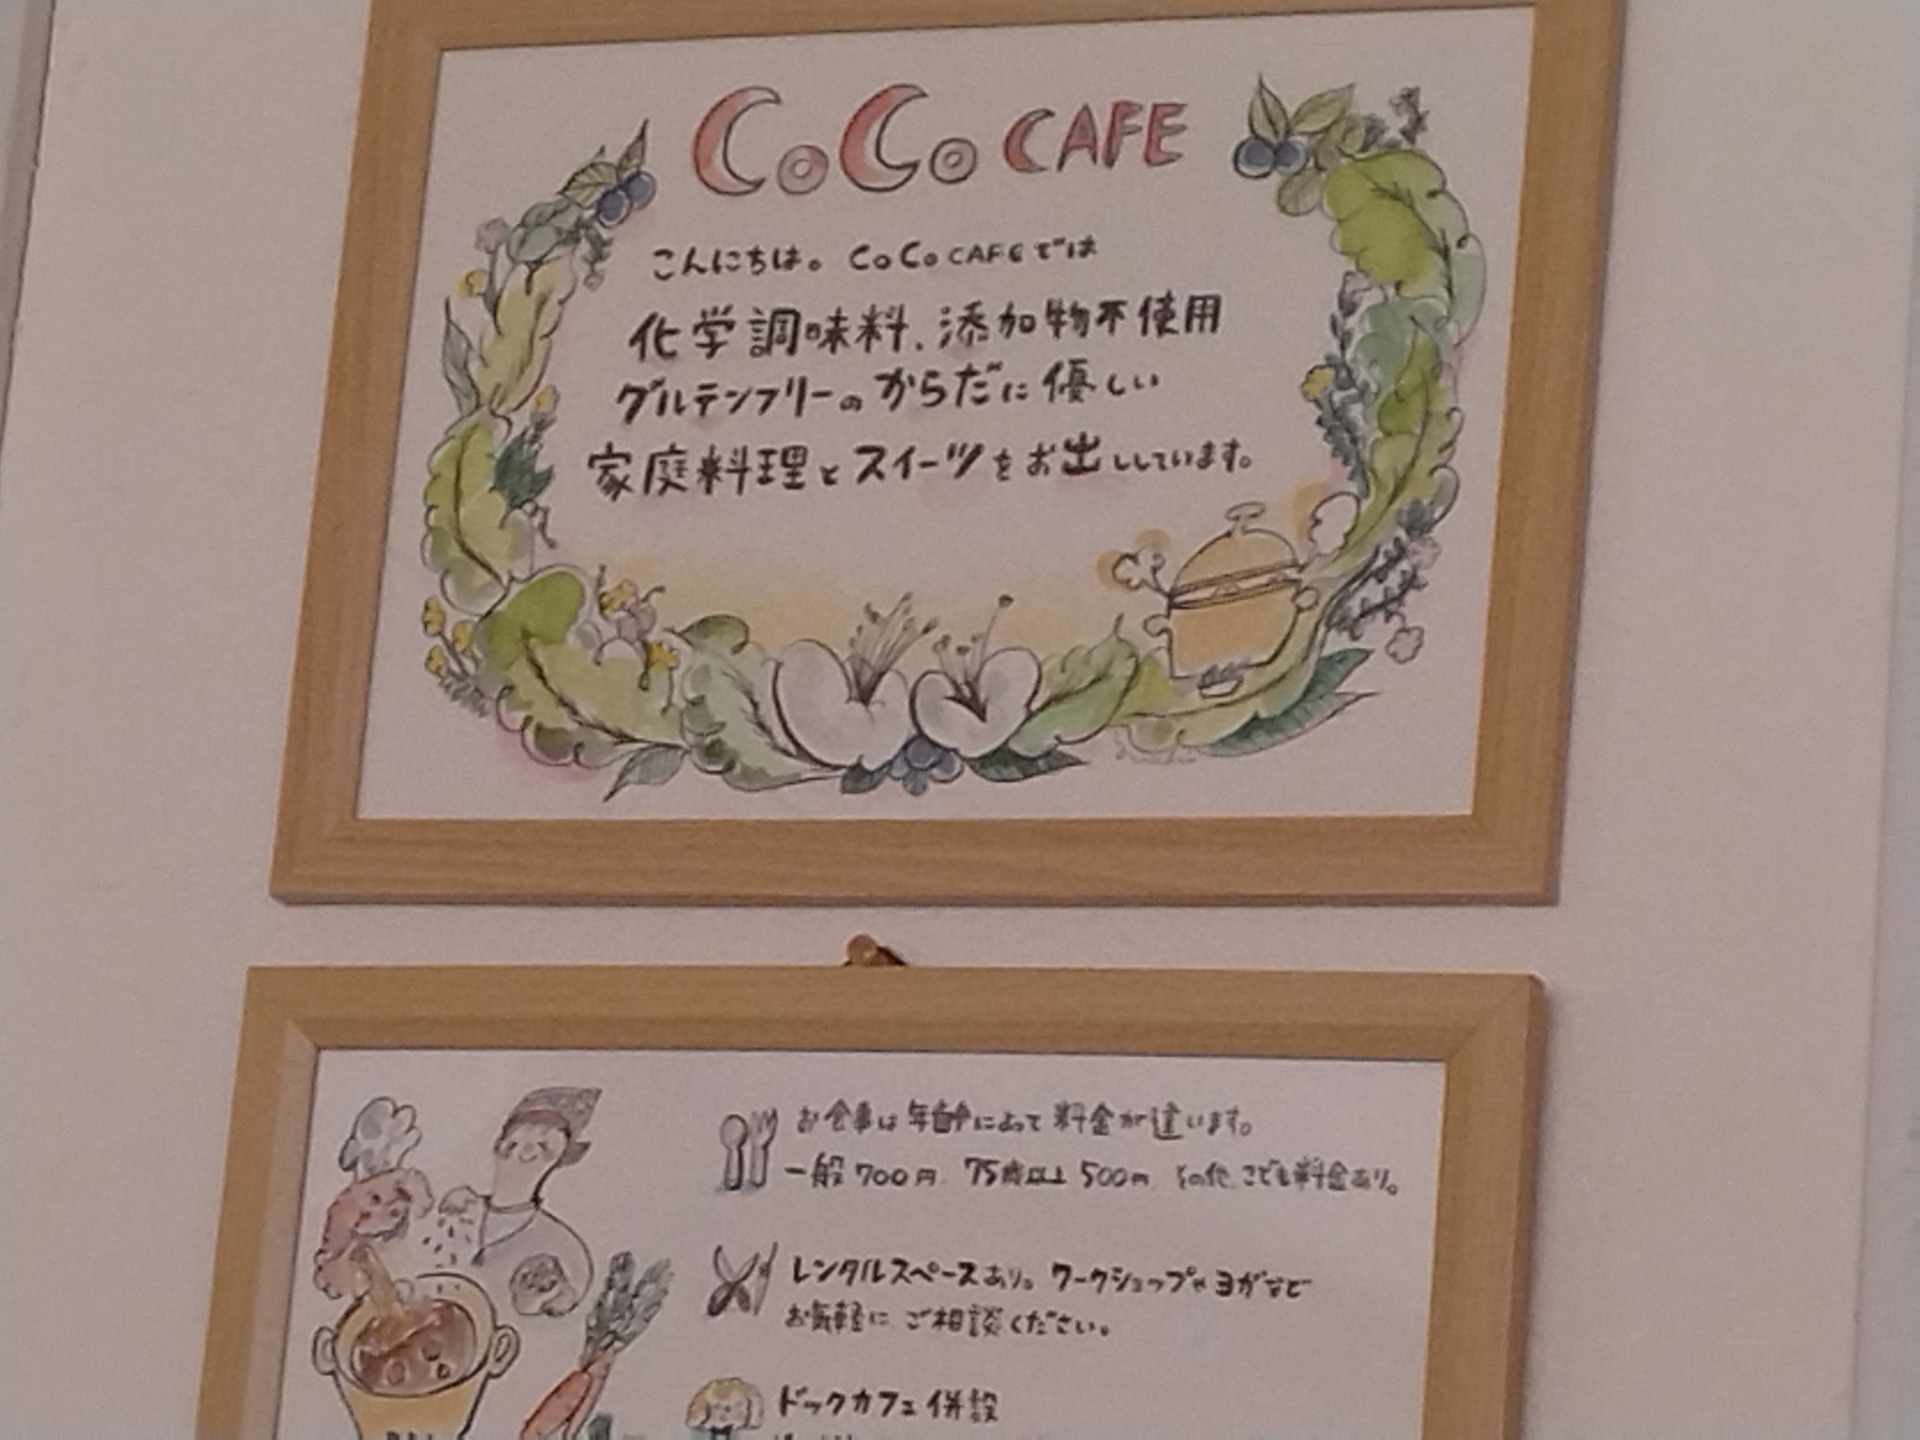 CoCo CAFE
こんにちは。CoCo CAFEでは
化学調味料、添加物不使用
グルテンフリーのからだに優しい
家庭料理とスイーツをお出ししています。
お食事は年齢によって料金が違います。
一般700円 75歳以上500円 その他こども料金あり。
レンタルスペースあり。ワークショップやヨガなど
お気軽にご相談ください。
ドックカフェ併設